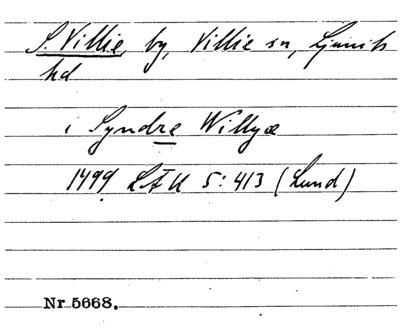 S. Villie, by, Villie sn, Ljunits
hd
i Syndre Willyæ
1499 LÄU 5:413 (Lund)
Nr 5668.